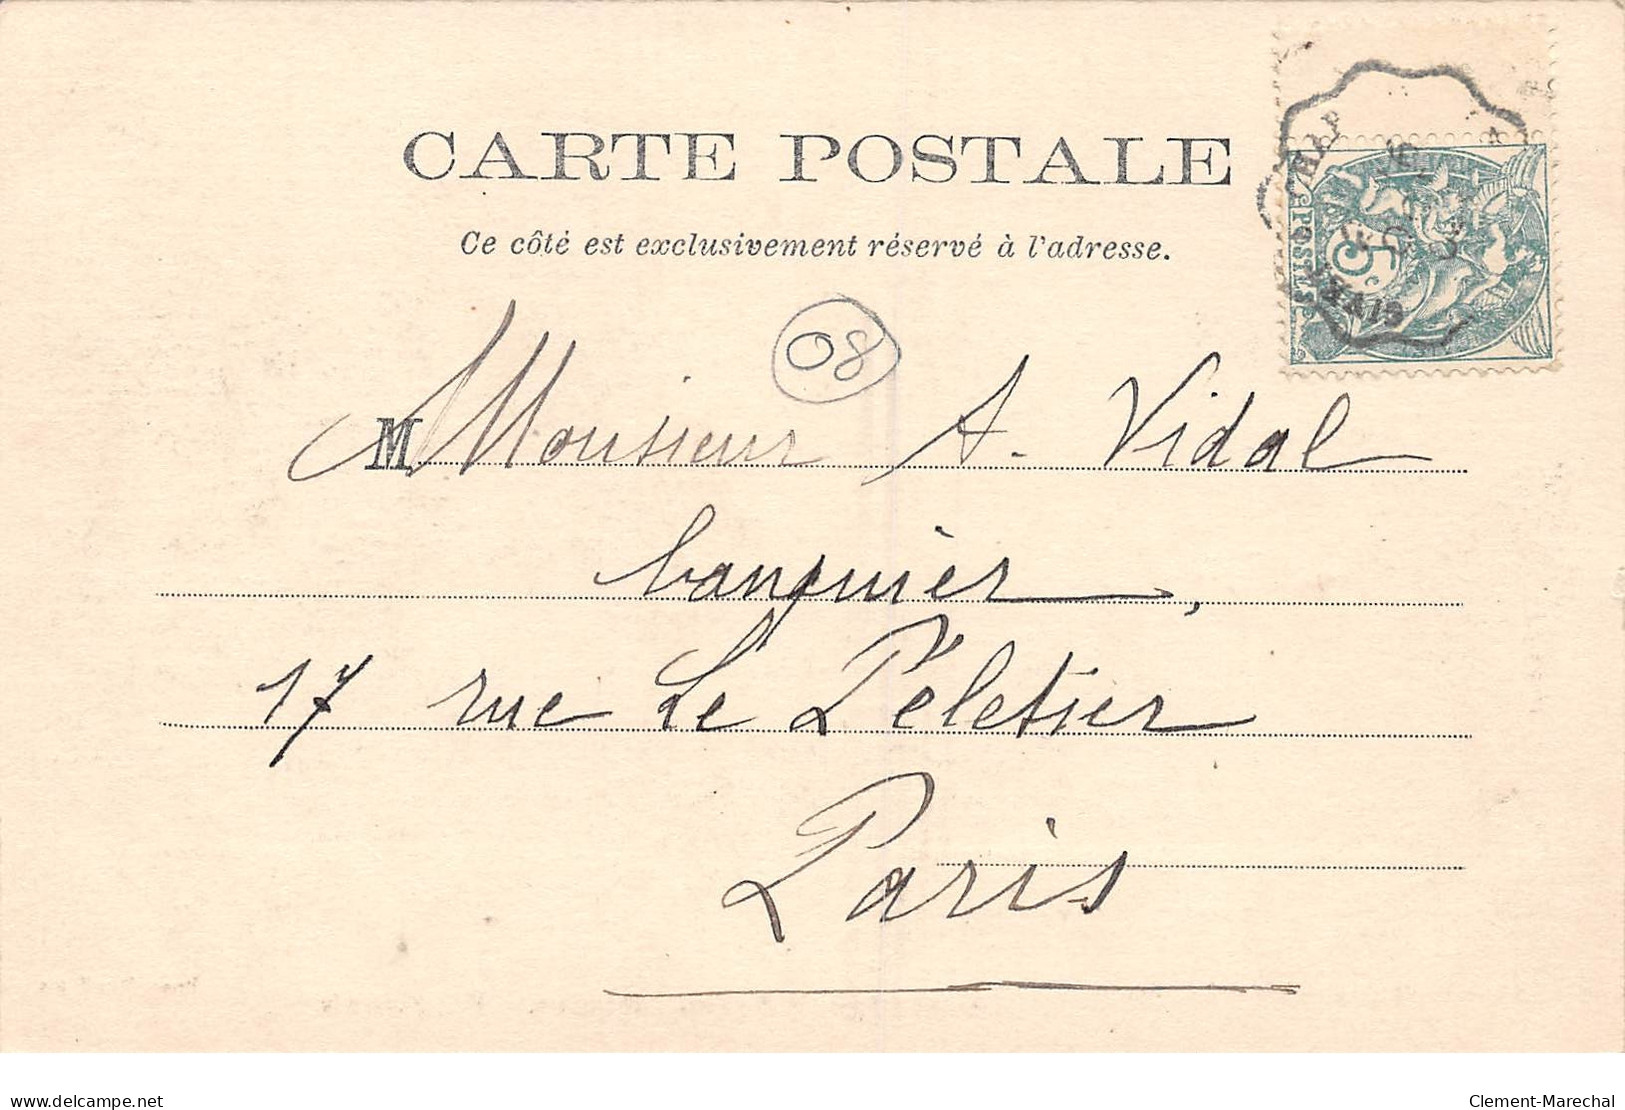 CARTE POSTALE
Ce côté est exclusivement réservé à l'adresse.
08
M Monsieur A. Vidal
banquier,
17 rue Le Peletier
Paris
POSTES
5c
delcampe.net
Clement-Marechal